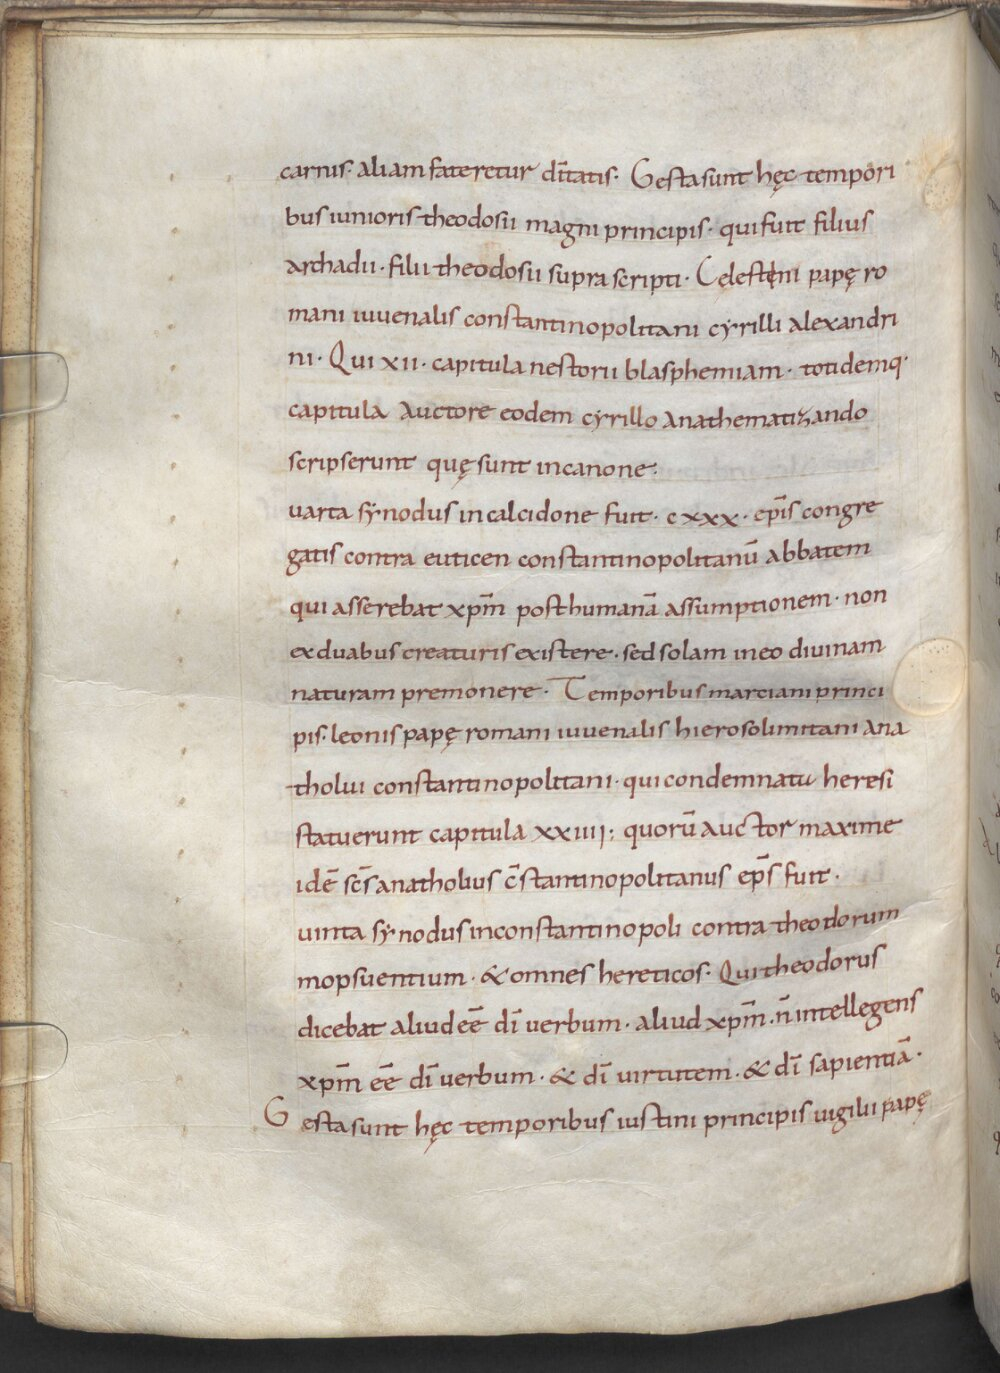 carnis· aliam fateretur dītatis· Gesta sunt hęc tempori
bus iunioris theodosii magni principis· qui fuit filius
archadii· filii theodosii supra scripti· Celestini papę ro
mani iuuenalis constantinopolitani cyrilli alexandri
ni· Qui xii· capitula nestorii blasphemiam· totidemq·
capitula auctore eodem cyrillo anathematizando
scripserunt quę sunt in canone·
uarta synodus in calcidone fuit· cxxx· ep̄is congre
gatis contra euticen constantinopolitanū abbatem
qui asserebat xp̄m post humanā assumptionem· non
ex duabus creaturis existere· sed solam in eo diuinam
naturam premonere· Temporibus marciani princi
pis· leonis papę romani iuuenalis hierosolimitani ana
tholii constantinopolitani· qui condemnatu heresi
statuerunt capitula xxiiii; quorū auctor maxime
idē sc̄s anatholius c̄stantinopolitanus ep̄s fuit·
uinta synodus in constantinopoli contra theodorum
mopsuentium· & omnes hereticos· Qui theodorus
dicebat aliud eē dī uerbum· aliud xp̄m· n̄ intellegens
xp̄m eē dī uerbum· & dī uirtutem· & dī sapientiā·
Gesta sunt hęc temporibus iustini principis uigilii papę